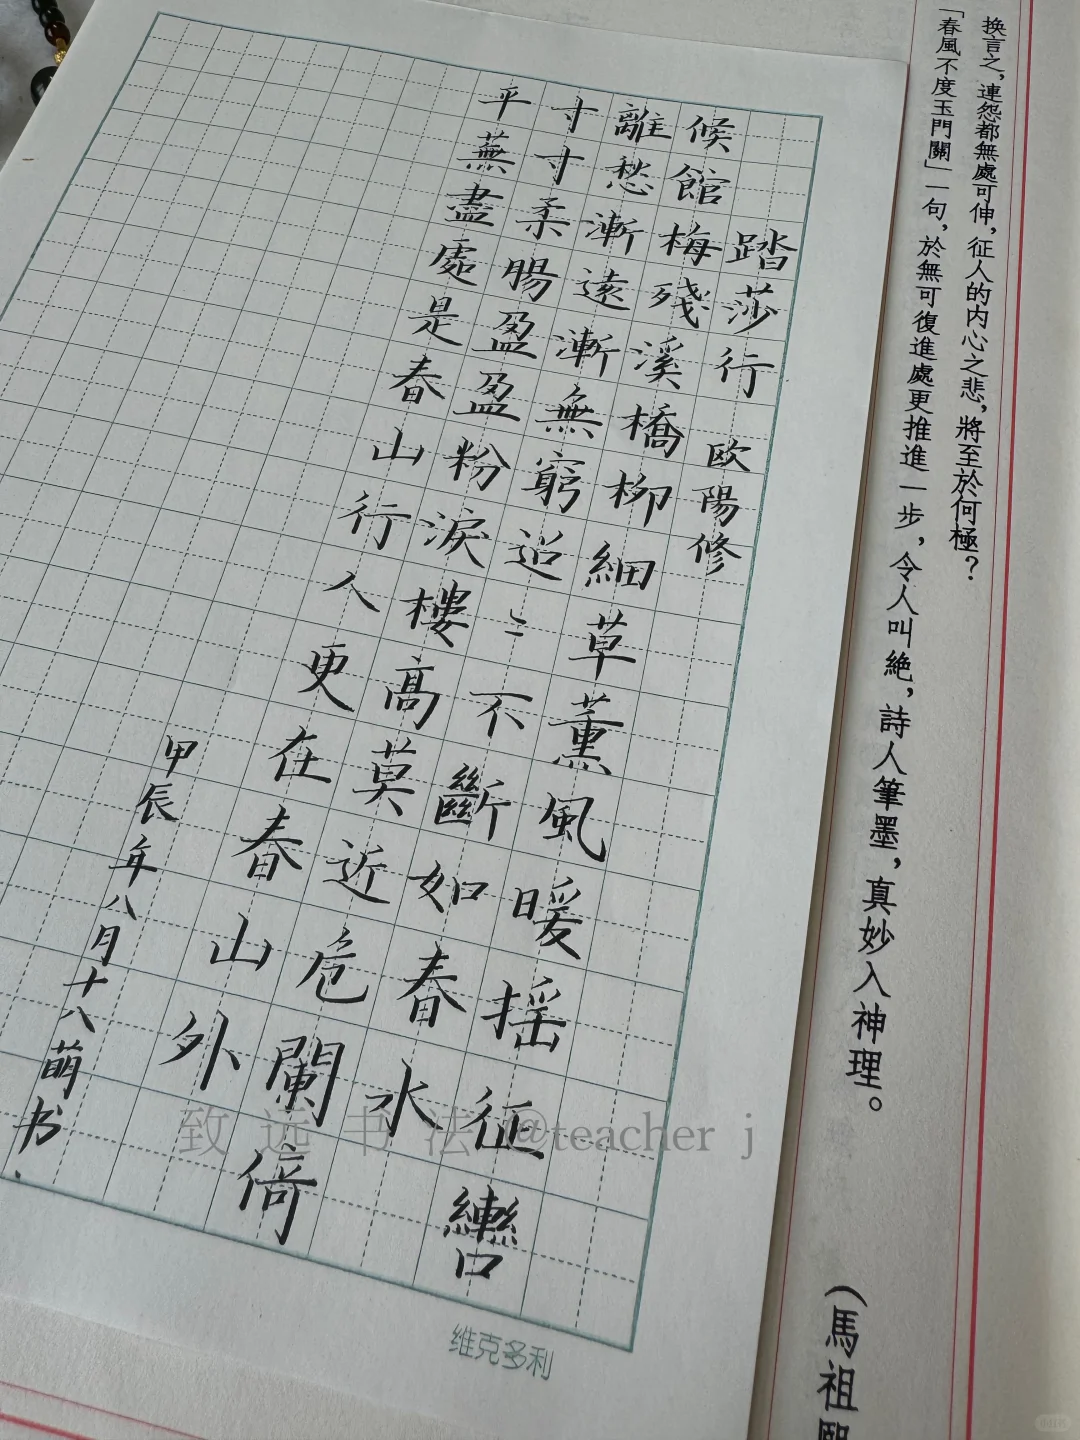 换言之，連怨都無處可伸，征人的内心之悲，將至於何極？
「春風不度玉門關」一句，於無可復進處更推進一步，令人叫絶，詩人筆墨，真妙入神理。
（馬祖熙
踏莎行 歐陽修
候館梅殘溪橋柳細草薰風暖摇征轡
離愁漸遠漸無窮迢〻不斷如春水
寸寸柔腸盈盈粉淚樓高莫近危闌倚
平蕪盡處是春山行人更在春山外
甲辰年八月十八萌书
致远书法@teacher j
维克多利